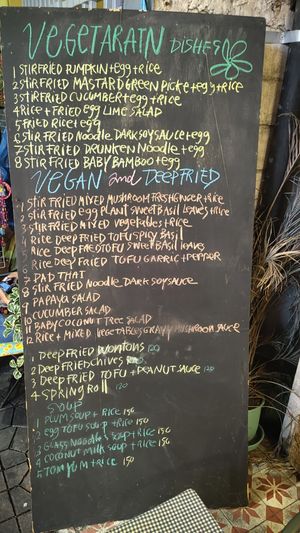 VEGETARAIN DISHES
1 STIR FRIED PUMPKIN + Egg + RICE
2 STIR FRIED MASTARD GREEN PICKE + egg + RICE
3 STIR FRIED CUCUMBER + egg + RICE
4 RICE + FRIED egg LIME SALAD
5 FRIED RICE + egg
6 STIR FRIED Noodle DARK SOY SAUCE + egg
7 STIR FRIED DRUNKEN Noodle + egg
8 STIR FRIED BABY BAMBOO + egg
VEGAN and DEEP FRIED
1 STIR FRIED MIXED MUSHROOM FRESH GINGER + RICE
2 STIR FRIED egg PLANT SWEET BASIL leaves + RICE
3 STIR FRIED MIXED Vegetables + RICE
4 Rice DEEP FRIED TOFU SPICY BASIL
5 RICE DEEP FRIED TOFU SWEET BASIL leaves
6 Rice Deep FRIED TOFU GARRIC + PEPPAR
7 PAD THAI
8 STIR FRIED Noodle DARK SOY SAUCE
9 PAPAYA SALAD
10 CUCUMBER SALAD
11 BABY COCONUT TREE SALAD
12 Rice + MIXED Vegetables GRAVY MUSHROOM SAUCE
1 DEEP FRIED WONTONS 120
2 DEEP FRIED CHIVES
3 DEEP FRIED TOFU + PEANUT SAUCE 120
4 SPRING ROll 120
SOUP
1 PLUM SOUP + RICE 150
2 egg TOFU SOUP + RICE 150
3 GLASS Noodles SOUP + RICE 150
4 COCONUT MILK SOUP + RICE 150
5 TOM YUM + RICE 150